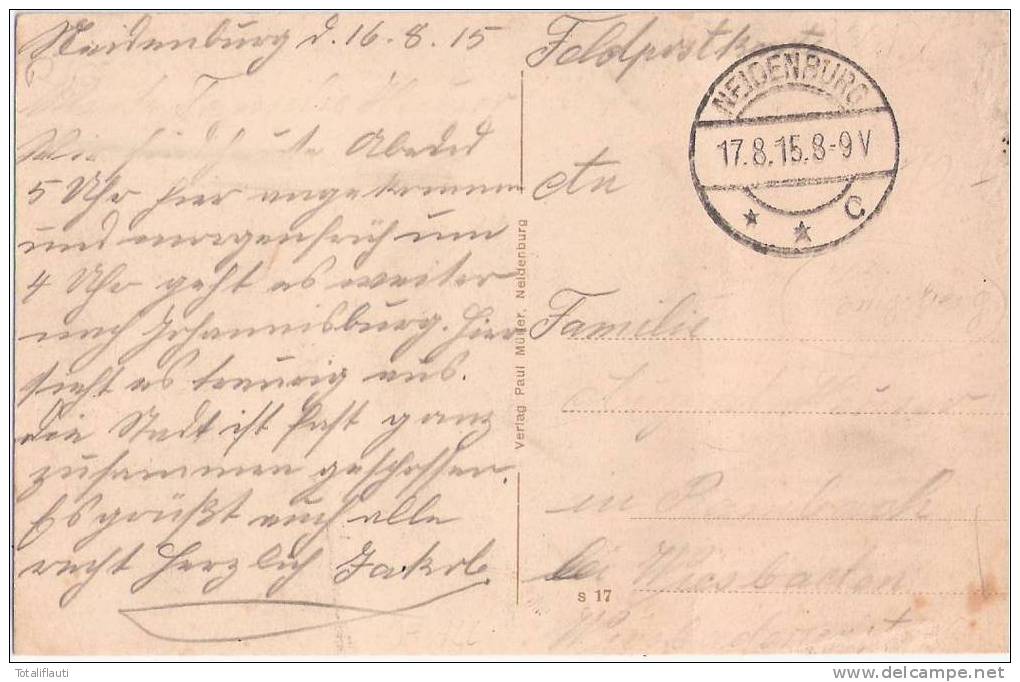 Neidenburg d. 16.8.15
Abend
5 Uhr hier angekommen
und morgenfrüh um
4 Uhr geht es weiter
nach Johannisburg. Hier
sieht es traurig aus.
Die Stadt ist fast ganz
zusammen geschossen.
Es grüßt euch alle
recht herzlich Jakob.
Feldpostkarte
NEIDENBURG
17.8.15.8-9V
C
An
Familie
in Rambach
bei Wiesbaden
Verlag Paul Müller, Neidenburg
S 17
Totaliflauti
www.delcampe.net